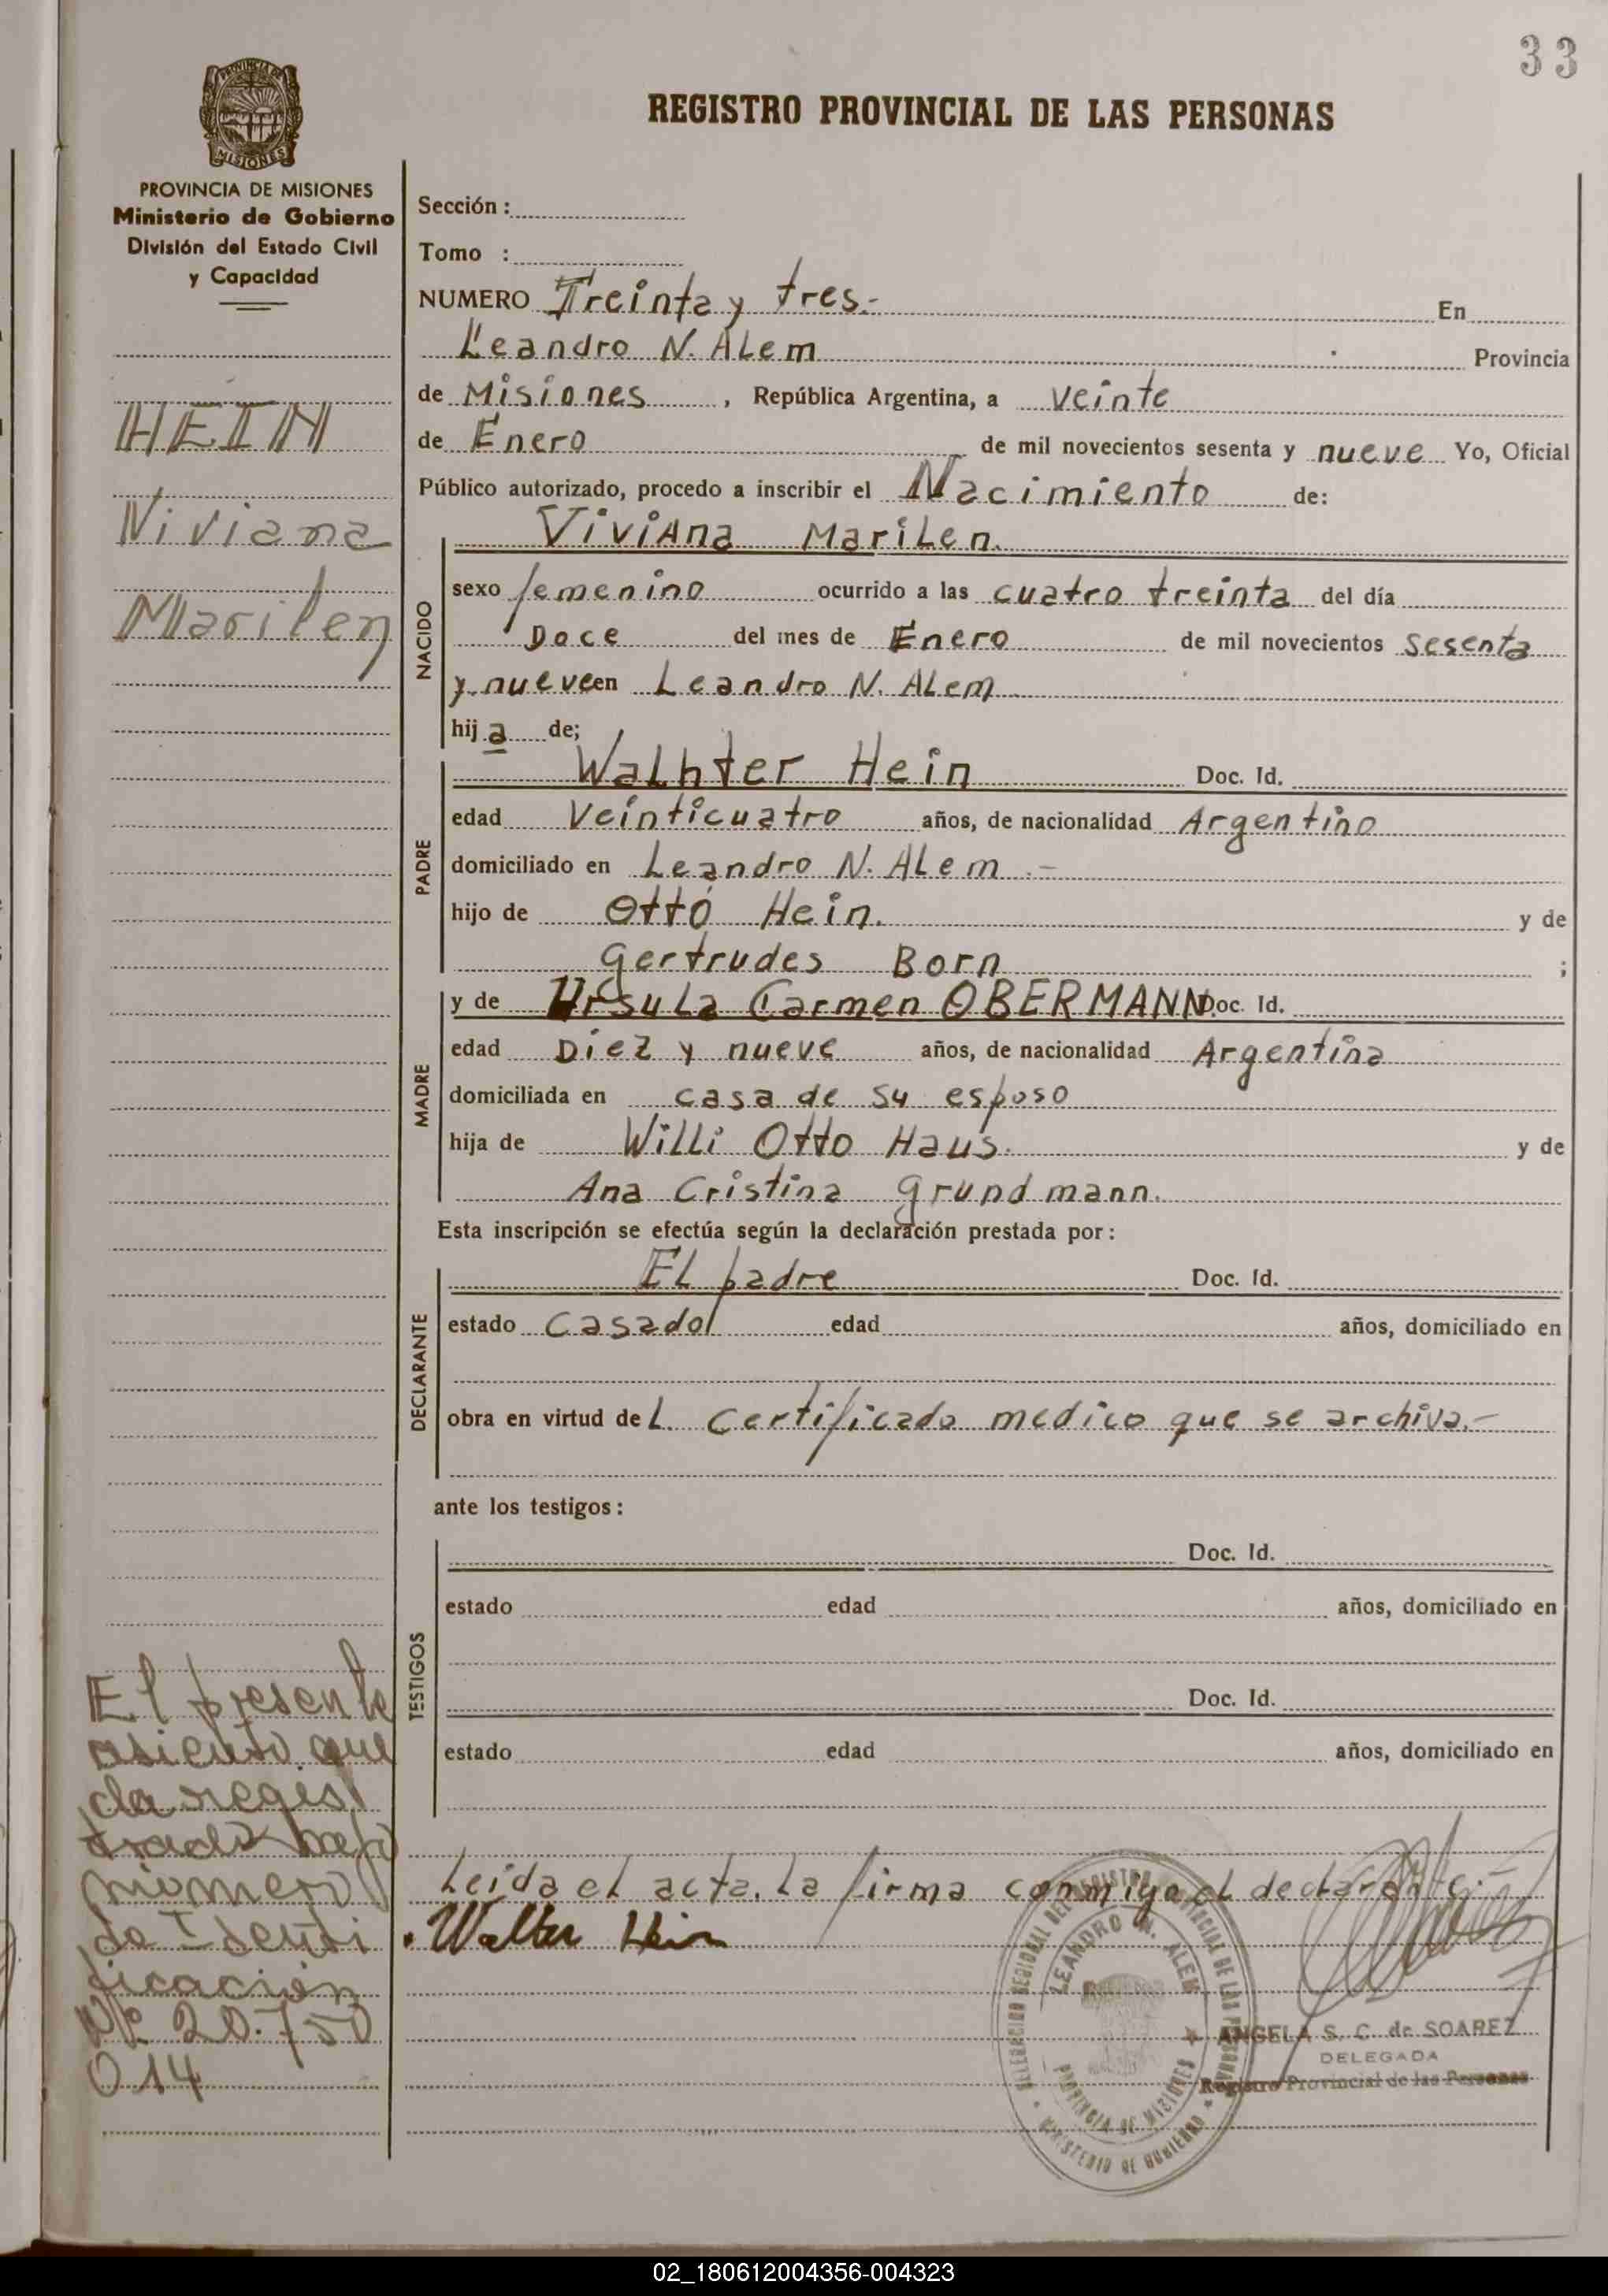 33
REGISTRO PROVINCIAL DE LAS PERSONAS
PROVINCIA DE MISIONES
PROVINCIA DE MISIONES
Ministerio de Gobierno
División del Estado Civil
y Capacidad
HEIN
Viviana
Marilen
Sección :
Tomo :
NUMERO Treinta y tres.- En
Leandro N. ALem Provincia
de Misiones , República Argentina, a veinte
de Enero de mil novecientos sesenta y nueve Yo, Oficial
Público autorizado, procedo a inscribir el Nacimiento de:
NACIDO
ViviAna MariLen.
sexo femenino ocurrido a las cuatro treinta del día
Doce del mes de Enero de mil novecientos sesenta
y nueve en Leandro N. ALem
hij a de;
PADRE
WaLhter Hein Doc. Id.
edad Veinticuatro años, de nacionalidad Argentino
domiciliado en Leandro N. ALem .-
hijo de Ottó Hein. y de
Gertrudes Born ;
MADRE
y de UrsuLa Carmen OBERMANN. Doc. Id.
edad Diez y nueve años, de nacionalidad Argentina
domiciliada en casa de su esposo
hija de WiLLi Otto Haus. y de
Ana Cristina grundmann.
Esta inscripción se efectúa según la declaración prestada por:
DECLARANTE
EL padre Doc. Id.
estado Casado edad años, domiciliado en
obra en virtud de L certificado medico que se archiva.-
ante los testigos:
TESTIGOS
Doc. Id.
estado edad años, domiciliado en
Doc. Id.
estado edad años, domiciliado en
El presente
asiento que
da regis
trado bajo
número
de Identi
ficación
Nº 20.750
014
Leida eL acta, La firma conmigo eL decLarante.-
Walter Hein
DELEGACION REGIONAL DEL REGISTRO PROVINCIAL DE LAS PERSONAS
LEANDRO N. ALEM
PROVINCIA DE MISIONES
MINISTERIO DE GOBIERNO
ANGELA S. C. de SOAREZ
DELEGADA
Registro Provincial de las Personas
02_180612004356-004323